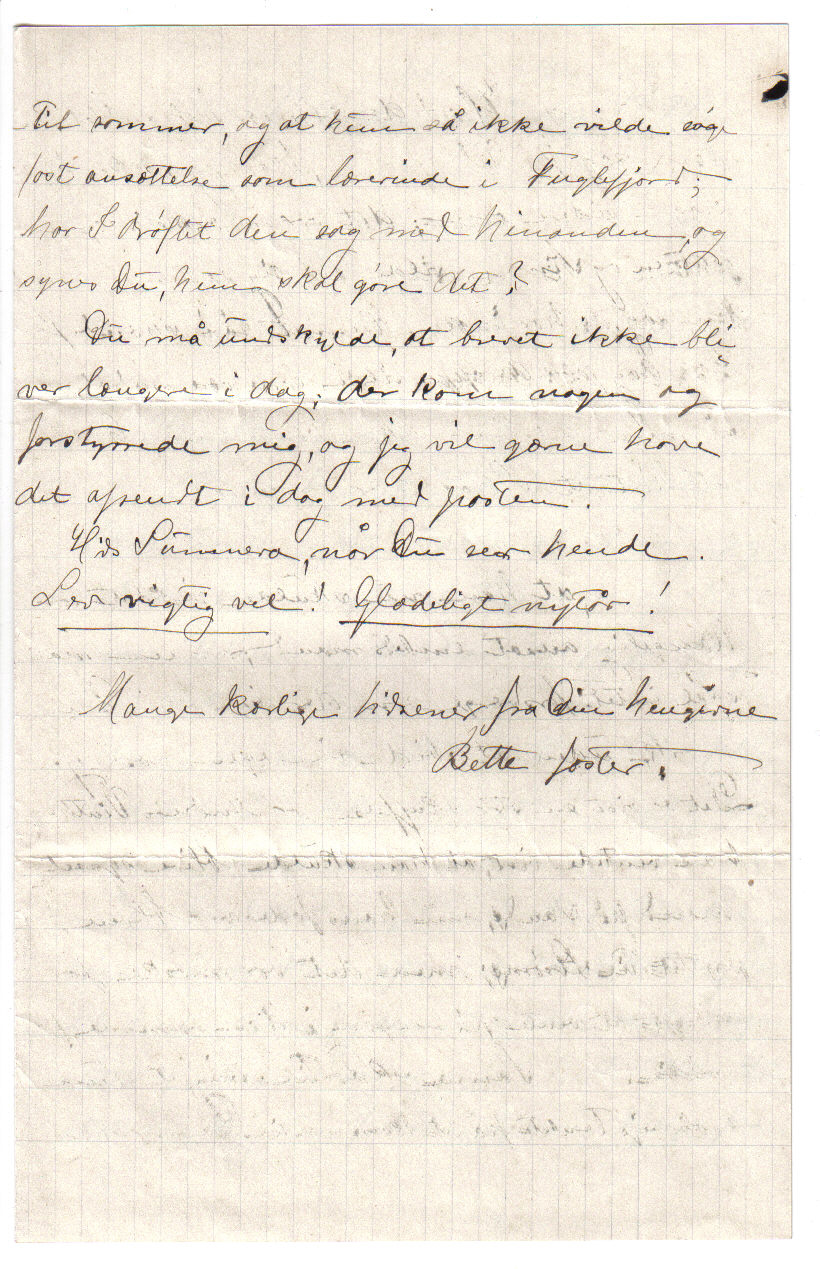 til sommer, og at hun så ikke vilde søge
fast ansættelse som lærerinde i Fuglefjord;
har I drøftet den sag med hinanden, og
synes Du, hun skal gøre det?
Du må undskylde, at brevet ikke bli
ver længere i dag; der kom nogen og
forstyrrede mig, og jeg vil gærne have
det afsendt i dag med posten.
Hils Sunnevа, når Du ser hende.
Lev rigtig vel! Glædeligt nytår!
Mange kærlige hilsener fra Din hengivne
Bette faster.